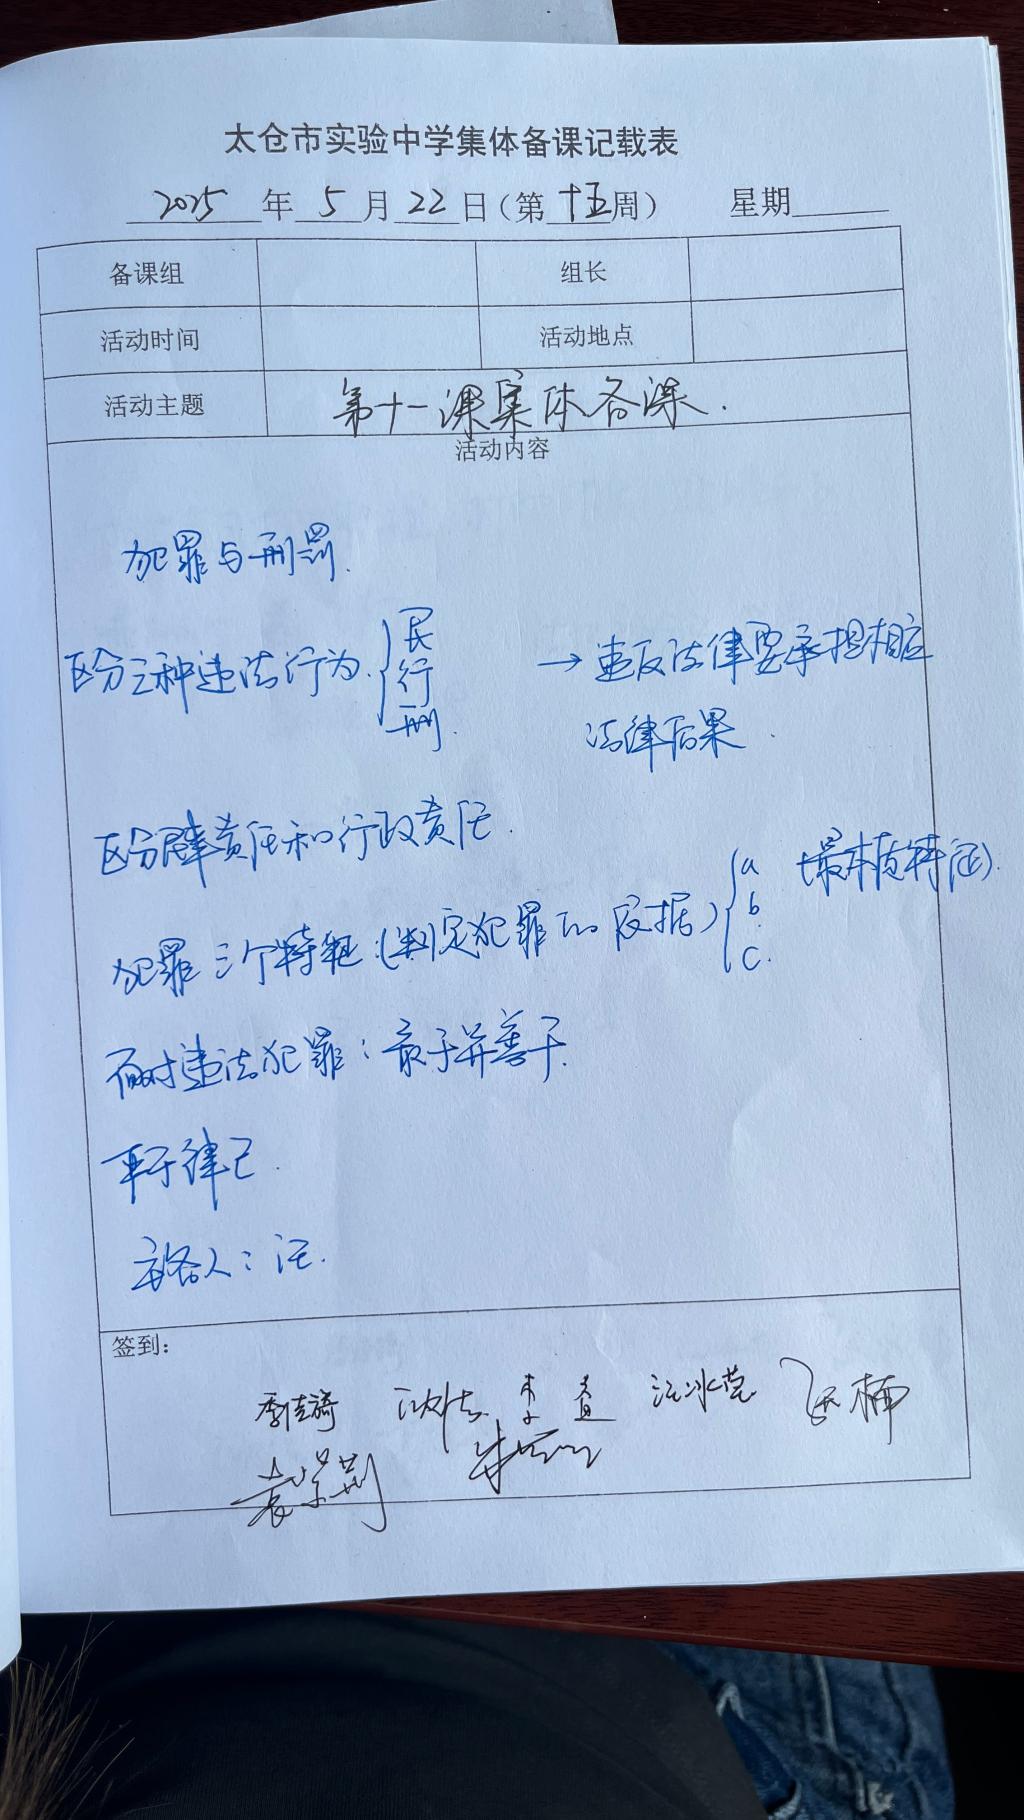 太仓市实验中学集体备课记载表
2025年5月22日(第十五周) 星期
备课组 组长
活动时间 活动地点
活动主题 第十一课集体备课.
活动内容
犯罪与刑罚.
区分三种违法行为. { 民 行 刑. → 违反法律要承担相应
法律后果.
区分 责任和行政责任.
犯罪三个特征:(判定犯罪的依据) { a (最本质特征).
b
c.
面对违法犯罪: 敢于并善于.
律己.
人: 汪.
签到:
季 李 汪冰莹 楠
袁 朱